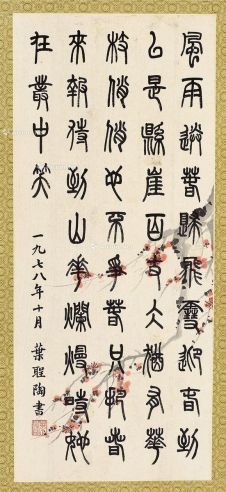 風雨送春歸飛雪迎春到
已是縣崖百丈冰猶有華
枝俏俏也不爭春只把春
來報待到山華爛熳時她
在叢中笑
一九七八年十月 葉聖陶書